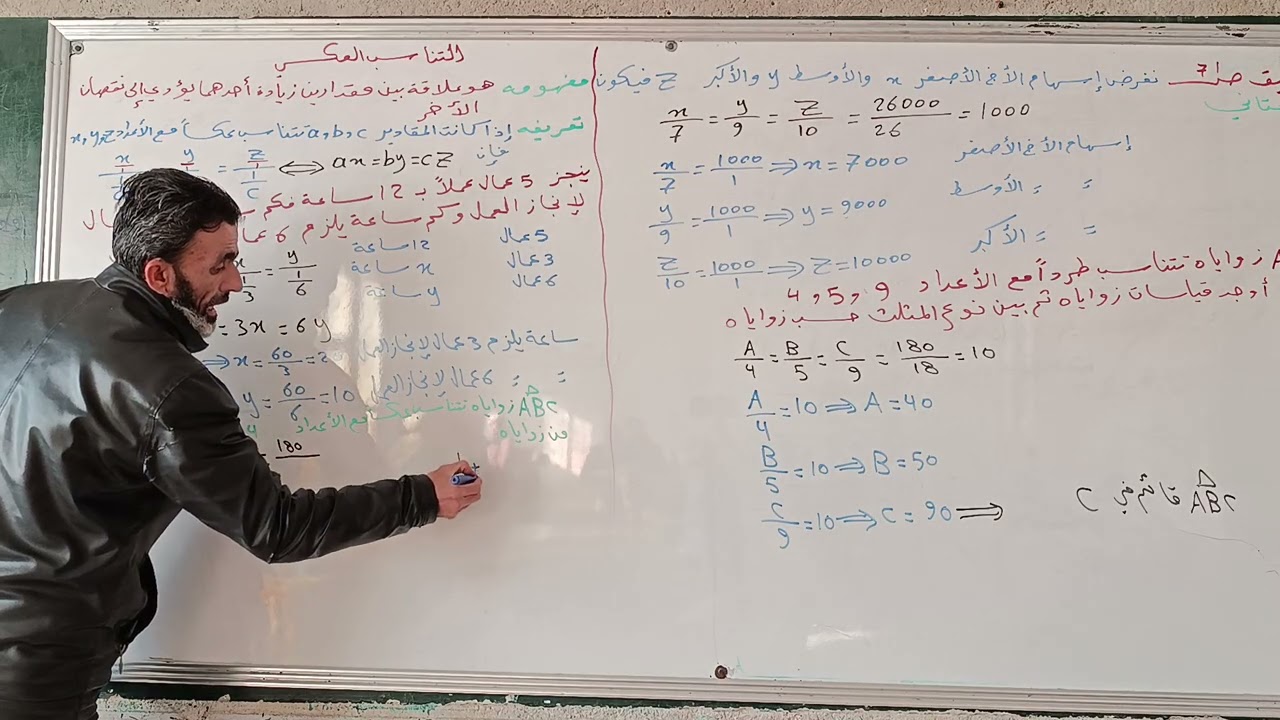 التناسب العكسي
مفهومه هو علاقة بين مقدارين زيادة أحدهما يؤدي إلى نقصان
الآخر
تعريفه إذا كانت المقادير a, b, c تتناسب عكساً مع الأعداد x, y, z
فإن ax = by = cz ⟺ = z/(1/c) y x/1
ينجز 5 عمال عملاً بـ 12 ساعة فكم
لإنجاز العمل وكم ساعة يلزم 6 عمال
5 عمال 12 ساعة
3 عمال x ساعة
6 عمال y ساعة
x/(1/3) = y/(1/6)
= 3x = 6y
⟹ x = 60/3 = 2 ساعة يلزم 3 عمال لإنجاز العمل
y = 60/6 = 10 = = 6 عمال لإنجاز العمل
ABC زواياه تتناسب عكساً مع الأعداد
من زواياه
= 180
ص 17 نفرض إسهام الأخ الأصغر x والأوسط y والأكبر z فيكون
x/7 = y/9 = z/10 = 26000/26 = 1000
إسهام الأخ الأصغر x/7 = 1000/1 ⟹ x = 7000
= = الأوسط y/9 = 1000/1 ⟹ y = 9000
= = الأكبر z/10 = 1000/1 ⟹ z = 10000
A زواياه تتناسب طرداً مع الأعداد 4, 5, 9
أوجد قياسات زواياه ثم بين نوع المثلث حسب زواياه
A/4 = B/5 = C/9 = 180/18 = 10
A/4 = 10 ⟹ A = 40
B/5 = 10 ⟹ B = 50
C/9 = 10 ⟹ C = 90 ⟹
ABC قائم في C